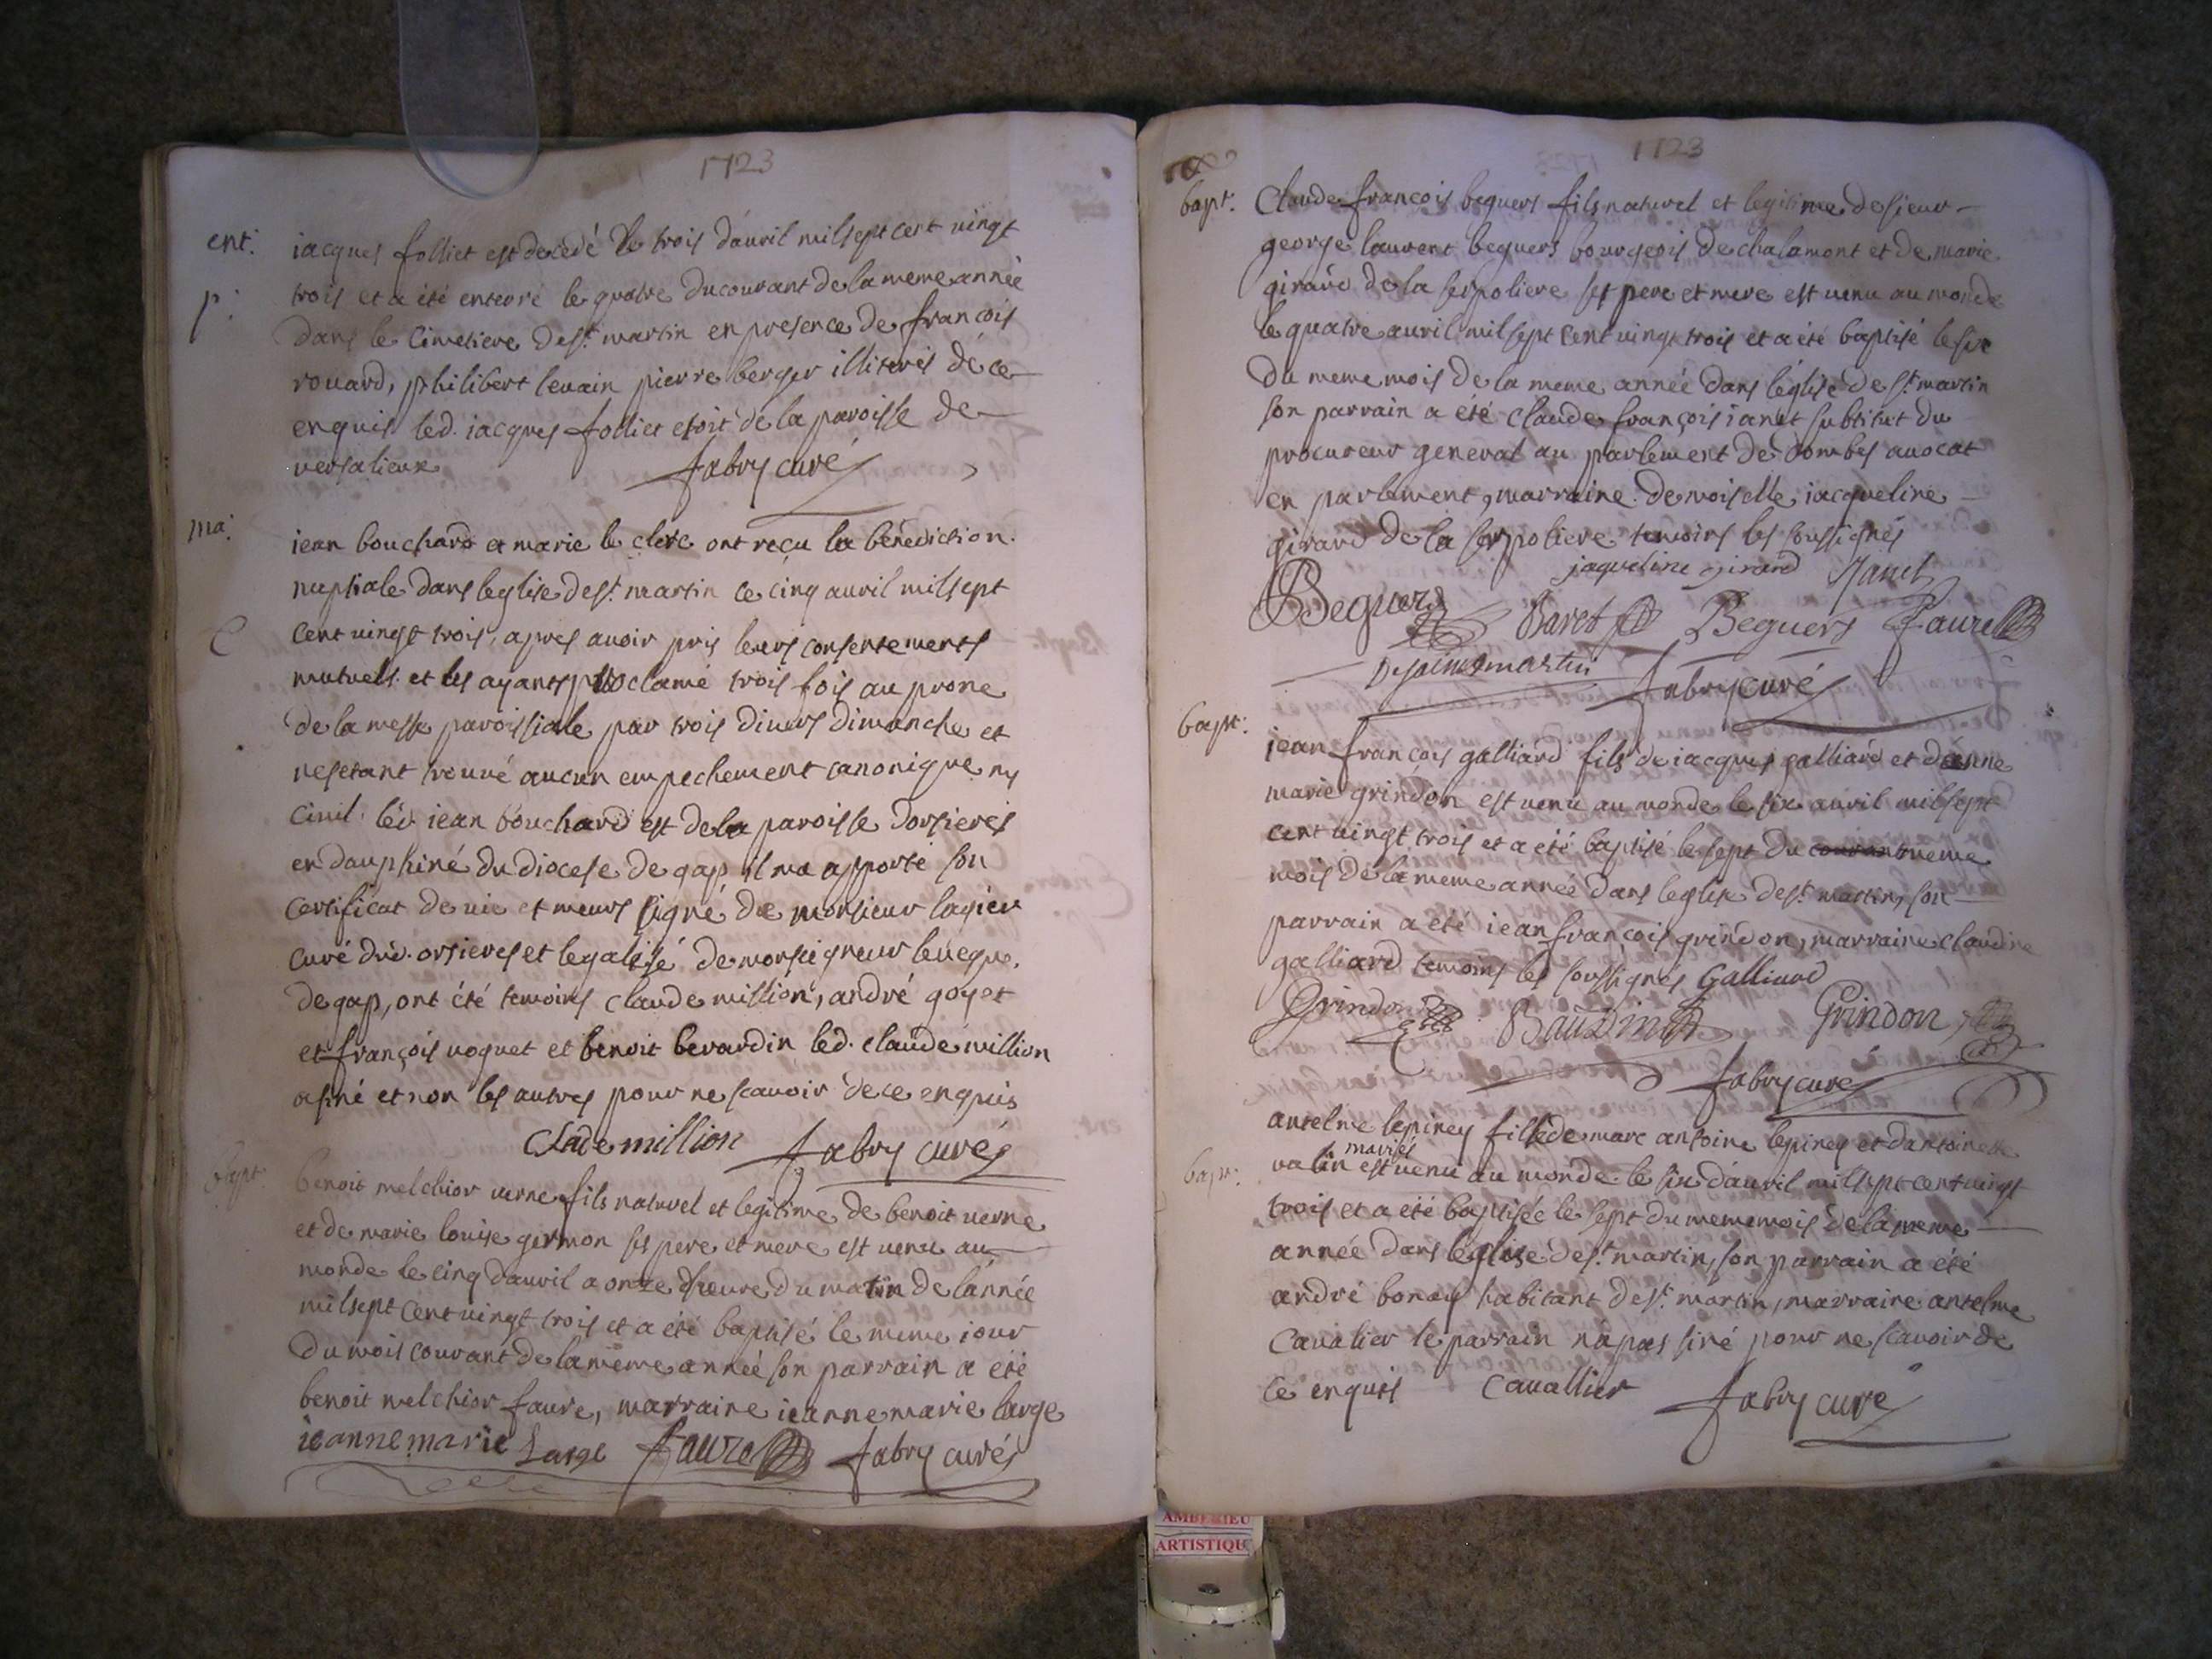 1723
ent. iacques folliet est decedé le trois d'auril mil sept cent uingt
p. trois et a été enterré le quatre du courant de la meme année
dans le Cimetiere de st. martin en presence de francois
rouard, philibert leuain pierre berger illiterés de ce
enquis led. iacques folliet etoit de la paroisse de
uersalieux fabry curé
ma. iean bouchard et marie le clerc ont reçu la bénédiction
nuptiale dans leglise de st. martin ce cinq auril mil sept
C cent uingt trois, apres auoir pris leurs consentements
mutuels et les ayants proclamé trois fois au prone
de la messe paroissiale par trois diuers dimanche et
ne setant trouué aucun empechement canonique ny
Ciuil led. iean bouchard est de la paroisse dorsieres
en dauphiné du diocese de gap il ma apporté son
certificat de uie et meurs signé de monsieur lagier
curé dud. orsieres et legalisé de monseigneur leueque
de gap, ont été temoins claude million, andré goyet
et françois uoguet et benoit berardin led. claude million
a siné et non les autres pour ne scauoir de ce enquis
Clade million fabry curé
bapt. benoit melchior uerne fils naturel et legitime de benoit uerne
et de marie louise germon ses pere et mere est uenu au
monde le cinq dauril a onze heure du matin de lannée
mil sept cent uingt trois et a été baptisé le meme iour
du mois courant de la meme année son parrain a été
benoit melchior faure, marraine ieanne marie large
ieanne marie Large faure fabry curé
1723
bapt. Claude francois beguers fils naturel et legitime de sieur
george laurent beguers bourgeois de chalamont et de marie
girard de la serpoliere ses pere et mere est uenu au monde
le quatre auril mil sept cent uingt trois et a été baptisé le six
du meme mois de la meme année dans l'église de st. martin
son parrain a été claude françois ianet subtitut du
procureur general au parlement de Dombes auocat
en parlement, marraine demoiselle iacqueline
girard de la serpoliere temoins les soussignés
jaqueline girard Janet
Beguers Baret Beguers faure
De saint martin fabry curé
bapt. iean françois galliard fils de iacques galliard et d'anne
marie grindon est uenu au monde le six auril mil sept
cent uingt trois et a été baptisé le sept du courant meme
mois de la meme année dans leglise de st. martin, son
parrain a été iean françois grindon, marraine claudine
galliard temoins les soussignés Galliard
Grindon Baudin Grindon
fabry curé
antelme lepiney fille de marc antoine lepiney et dantoinette
mariés
bapt. ualin est uenu au monde le six d'auril mil sept cent uingt
trois et a été baptisée le sept du meme mois de la meme
année dans léglise de st. martin, son parrain a été
andré bonay habitant de st. martin, marraine antelme
Caualier le parrain n'a pas siné pour ne scauoir de
ce enquis Cauallier fabry curé
AMBERIEU
ARTISTIQU